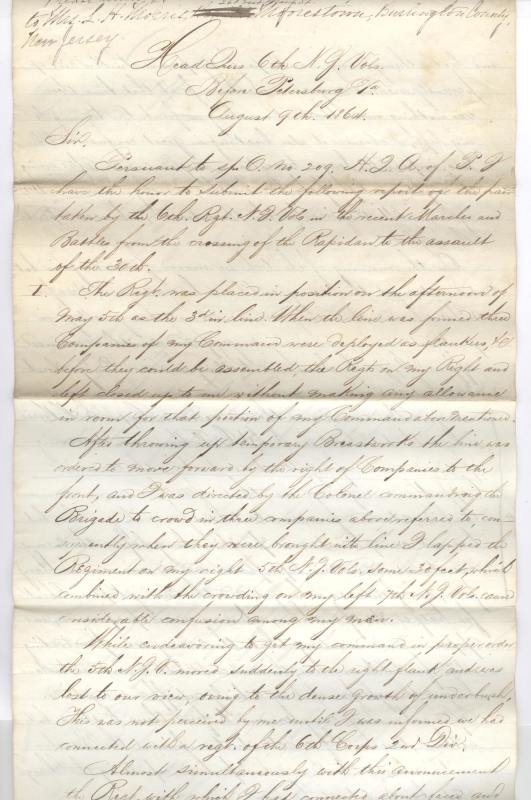 to Mrs. L. H. Morris, Moorestown, Burlington County,
New Jersey.
Head Qurs 6th N.J. Vols.
Before Petersburg Va.
August 9th. 1864.
Sir,
Persuant to sp. O. No. 209. H.Q.A. of. P. I
have the honor to submit the following report of the part
taken by the 6th. Rgt. N.J. Vols in the recent Marches and
Battles from the crossing of the Rapidan to the assault
of the 30th.
I. The Regt. was placed in position on the afternoon of
May 5th as the 3rd in line. When the line was formed three
Companies of my Command were deployed as flankers, &
before they could be assembled, the Regts on my Right and
left closed up to me without making any allowance
in room for that portion of my Command above mentioned.
After throwing up temporary Breastworks the line was
ordered to move forward by the right of Companies to the
front, and I was directed by the Colonel commanding the
Brigade to crowd in three companies above referred to, con-
sequently when they were brought into line I lapped the
Regiment on my right 5th N.J. Vols. some 30 feet, which
combined with the crowding on my left 7th N.J. Vols. caused
considerable confusion among my men.
While endeavoring to get my command in proper order
the 5th N.J.V. moved suddenly to the right flank, and was
lost to our view, owing to the dense growth of underbrush.
This was not perceived by me until I was informed we had
connected with a regt. of the 6th Corps 2nd Div.
Almost simultaneously with this announcement
the Regt. with which I had connected about faced and